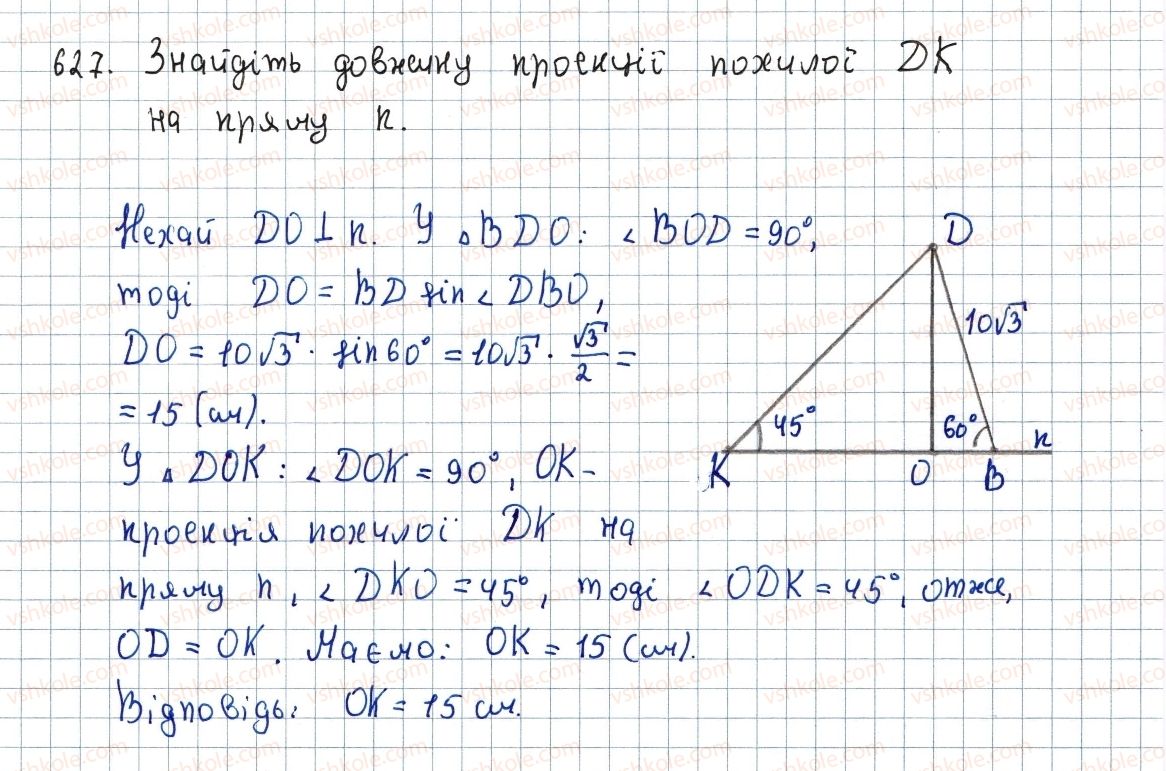 627. Знайдіть довжину проекції похилої DK
на пряму n.
Нехай DO⊥n. У ▵BDO: ∠BOD = 90°,
тоді DO = BD sin∠DBO,
DO = 10√3 · sin60° = 10√3 · √3/2 =
= 15 (см).
У ▵DOK: ∠DOK = 90°, OK-
проекція похилої DK на
пряму n, ∠DKO = 45°, тоді ∠ODK = 45°, отже,
OD = OK. Маємо: OK = 15 (см).
Відповідь: OK = 15 см.
D
10√3
45°
60°
n
K
O
B
vshkole.com